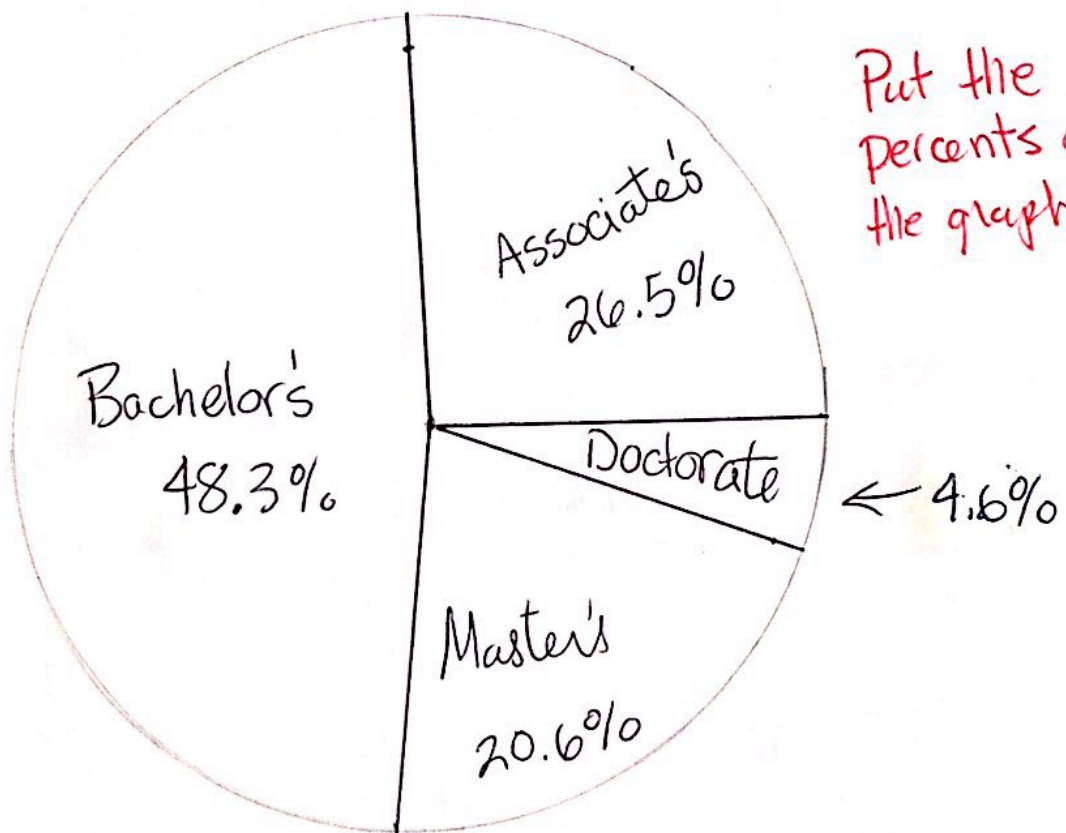 Put the
percents
the graph
Associate's
26.5%
Bachelor's
48.3%
Doctorate
← 4.6%
Master's
20.6%